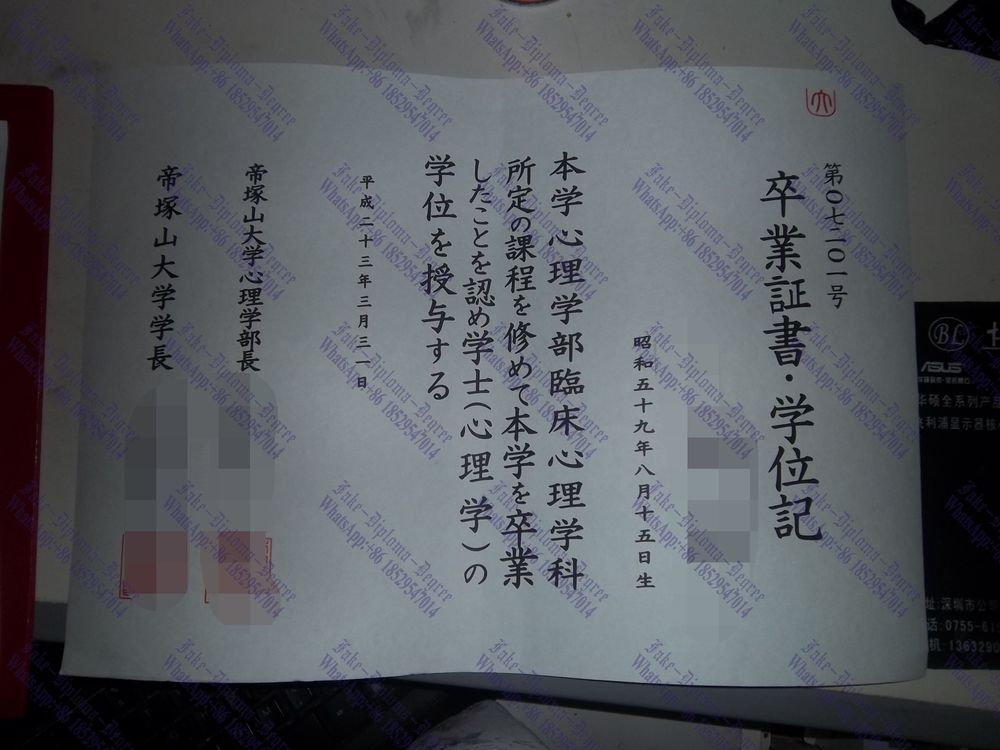 大
第〇七二〇一号
卒業証書・学位記
昭和五十九年八月十五日生
本学心理学部臨床心理学科
所定の課程を修めて本学を卒業
したことを認め学士(心理学)の
学位を授与する
平成二十三年三月三一日
帝塚山大学心理学部長
帝塚山大学学長
BL
ASUS
华硕全系列产
兆利浦显示器核
址:深圳市公
话:0755-61
机:1363290
Fake-Diploma-Degree
WhatsApp:+86 18529547014